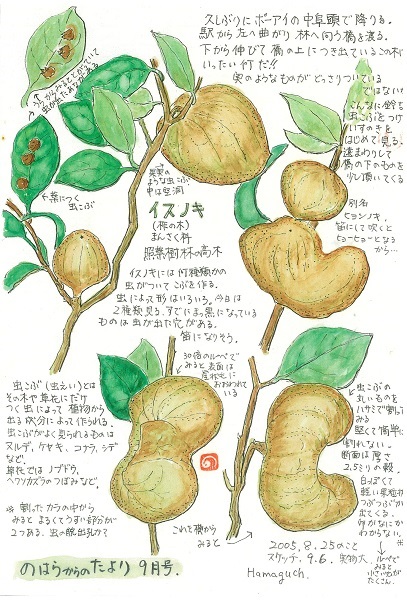 久しぶりにポーアイの中埠頭で降りる。
駅から左へ曲がり 林へ向う橋を渡る。
下から伸びて 橋の上につき出ているこの木は
いったい何だ!!
実のようなものがどっさりついている
ではないか
こんなに鈴なりに
虫こぶをつけた
いすのきを
はじめて見る。
遠まわりして
橋の下のものを
少し頂いてくる
別名
ヒョンノキ。
笛にして吹くと
ヒョーヒョーとなる
から…
うらからみるととがっていて
虫が出た穴がある
葉につく
虫こぶ
果実の
ような虫こぶ
中は空洞
イスノキ
(柞の木)
まんさく科
照葉樹林の高木
イスノキには何種類かの
虫がついてこぶを作る。
虫によって形はいろいろ。今日は
2種類見る。すでにまっ黒になっている
ものは虫が出た穴がある。
笛になりそう。
30倍のルーペで
みると表面は
星状毛に
おおわれている
虫こぶ(虫えい)とは
その木や草花にだけ
つく虫によって 植物から
出る成分によって作られる。
虫こぶがよく見られるものは
ヌルデ、ケヤキ、コナラ、シデ
など。
草花では ノブドウ、
ヘクソカズラのつぼみなど。
※ 割ったカラの中から
みると まるくてうすい部分が
2つある。虫の脱出孔か?
これを横から
みると
虫こぶの
丸いものを
ハサミで割ってみる
堅くて簡単に
割れない。
断面は厚さ
2.5ミリの殻。
白っぽくて
軽い果粒状の
つぶつぶが
出てくる。
卵かなにか
わからない。
※
ルーペで
みると
小さい虫が
たくさん。
2005.8.25のこと
スケッチ、9.6. 実物大
Hamaguch.
のはらからのたより 9月号.